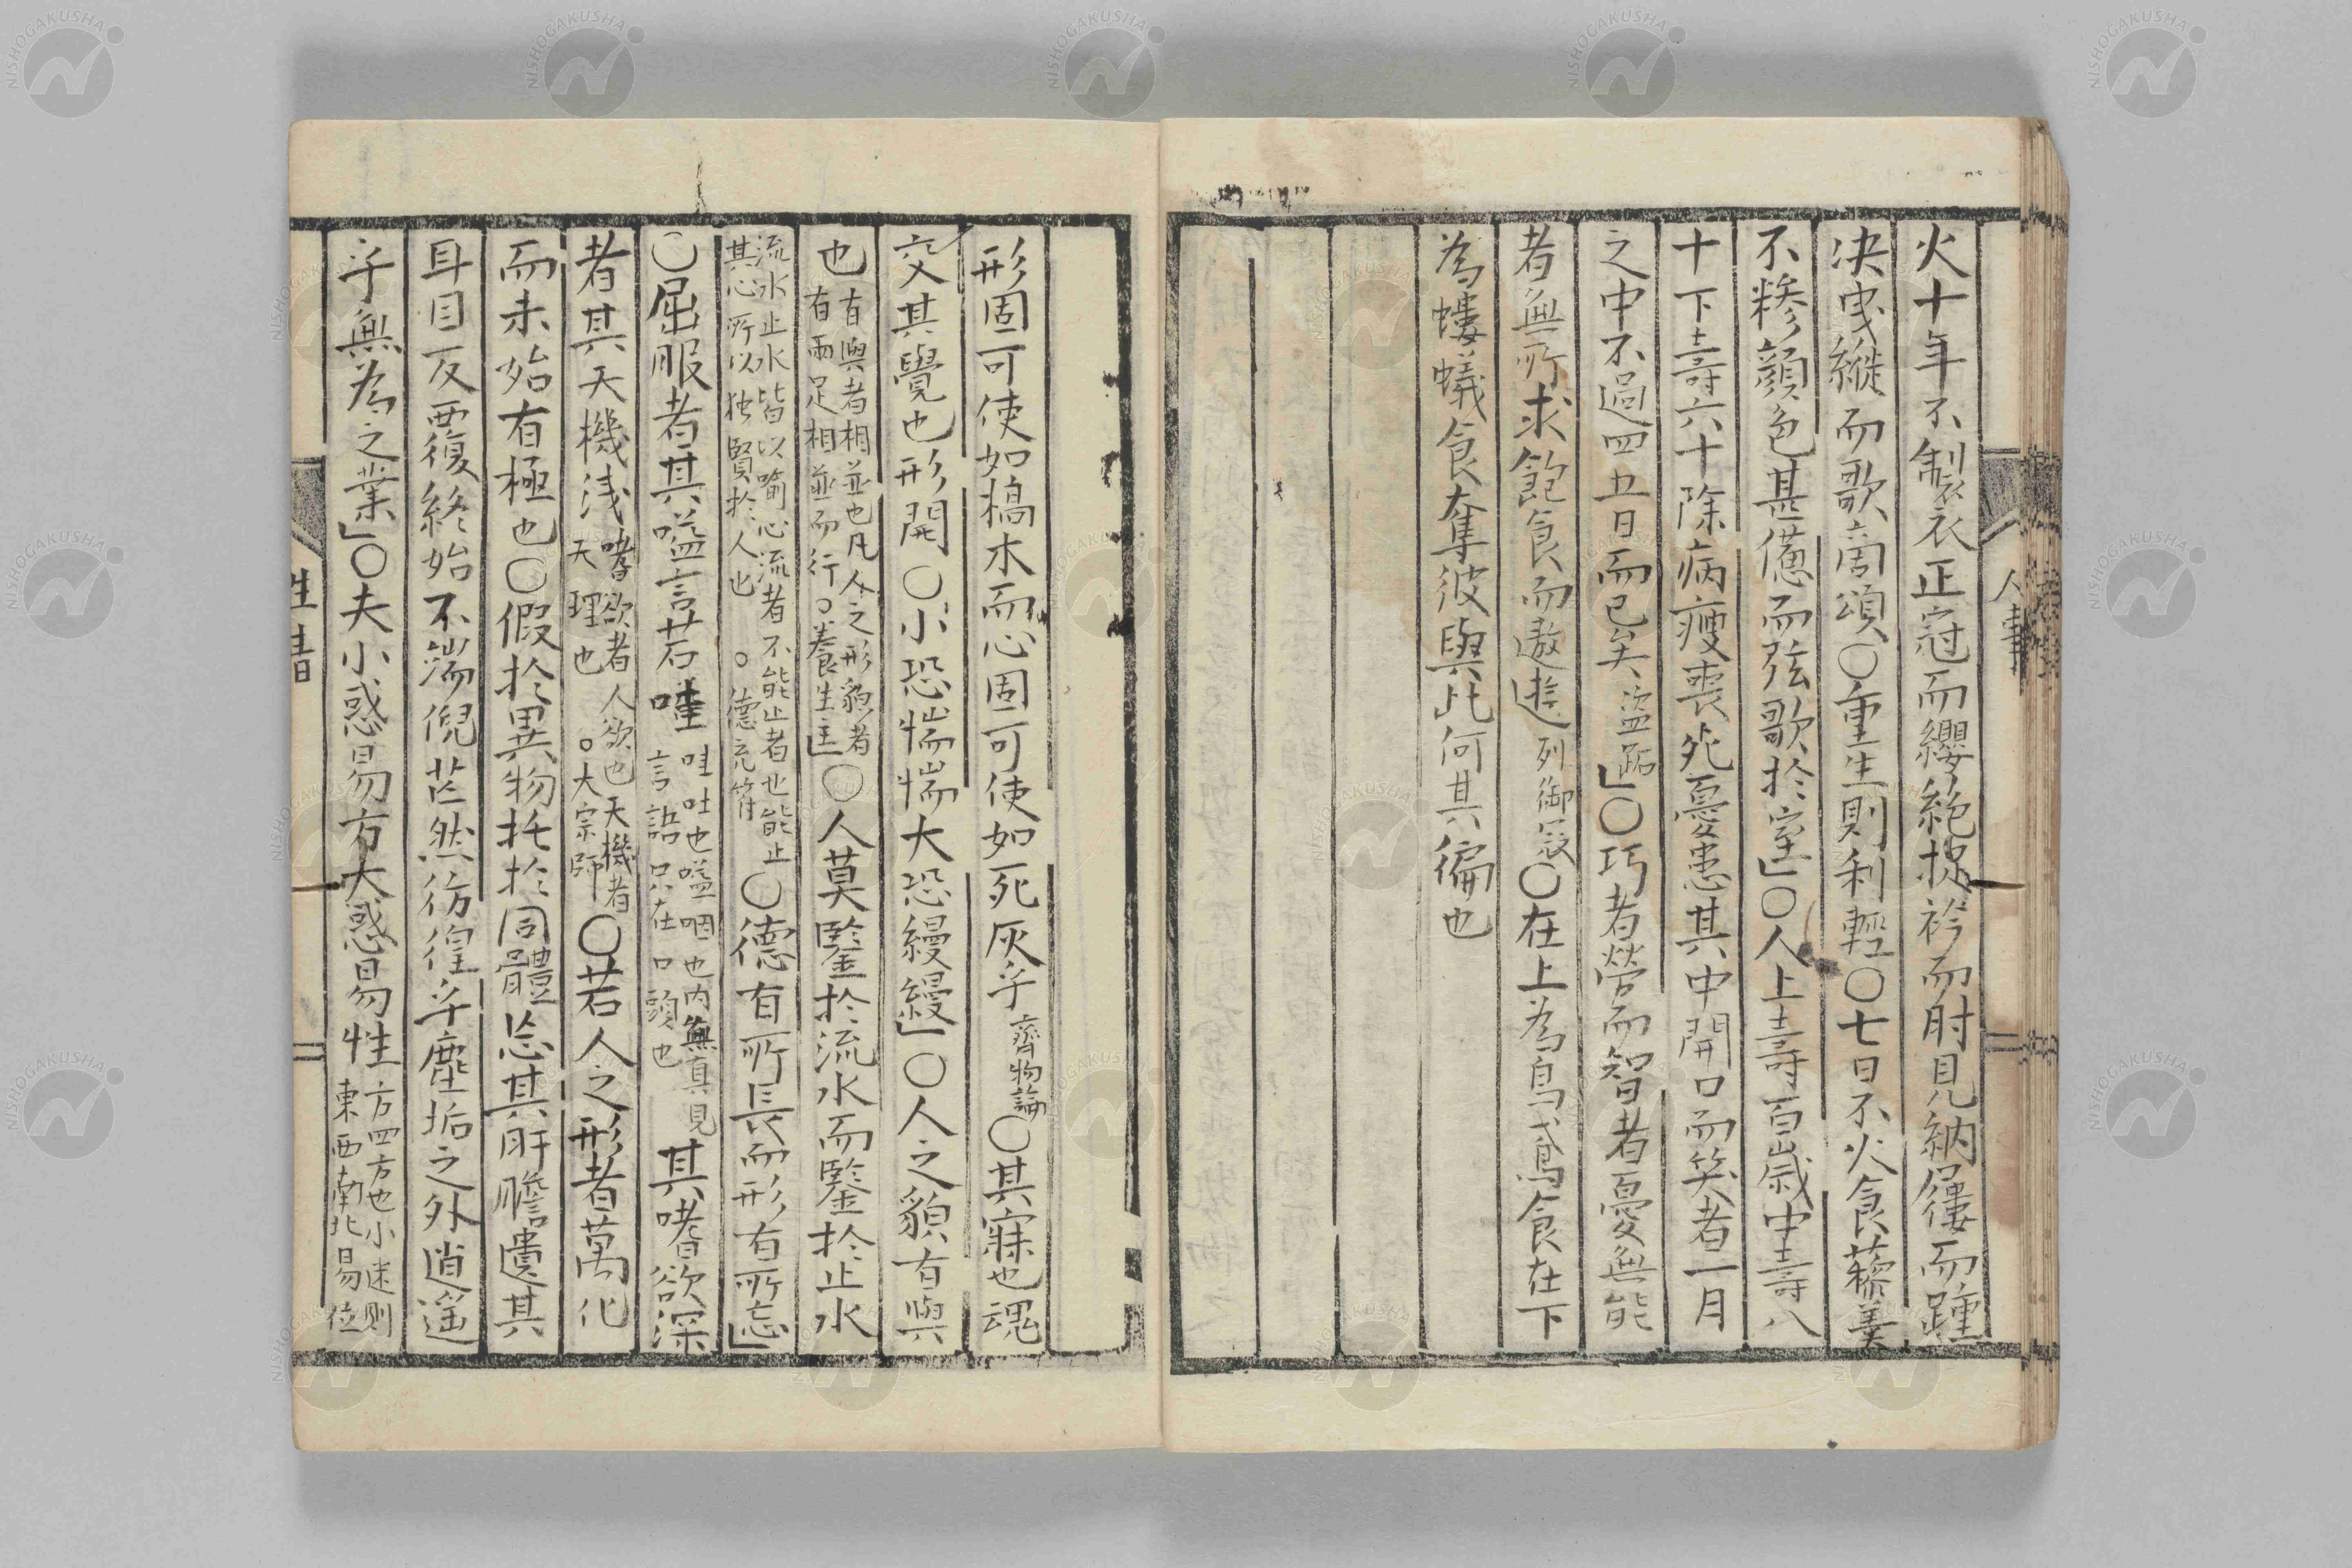 火十年不製衣正冠而纓絶捉衿而肘見納屨而踵
决曳縰而歌商頌○重生則利輕○七日不火食藜羹
不糝顔色甚憊而弦歌於室」○人上壽百歳中壽八
十下壽六十除病瘦喪死憂患其中開口而笑者一月
之中不過四五日而已矣盗跖」○巧者勞而智者憂無能
者無所求飽食而遨遊列御冦○在上為烏鳶食在下
為螻蟻食奪彼與此何其偏也
人事
形固可使如槁木而心固可使如死灰乎齊物論○其寐也魂
交其覺也形開○小恐惴惴大恐縵縵」○人之貌有與
也有與者相並也凡人之形貌者
有兩足相並而行○養生主」○人莫鑒於流水而鑒於止水
流水止水皆以喻心流者不能止者也能止
其心所以独賢於人也○德充符○德有所長而形有所忘」
○屈服者其嗌言若哇哇吐也嗌咽也内無真見
言語只在口頭也其嗜欲深
者其天機浅嗜欲者人欲也天機者
天理也○大宗師○若人之形者萬化
而未始有極也○假於異物托於同體忘其肝膽遺其
耳目反覆終始不端倪芒然彷徨乎塵垢之外逍遥
乎無為之業」○夫小惑易方大惑易性方四方也小迷則
東西南北易位